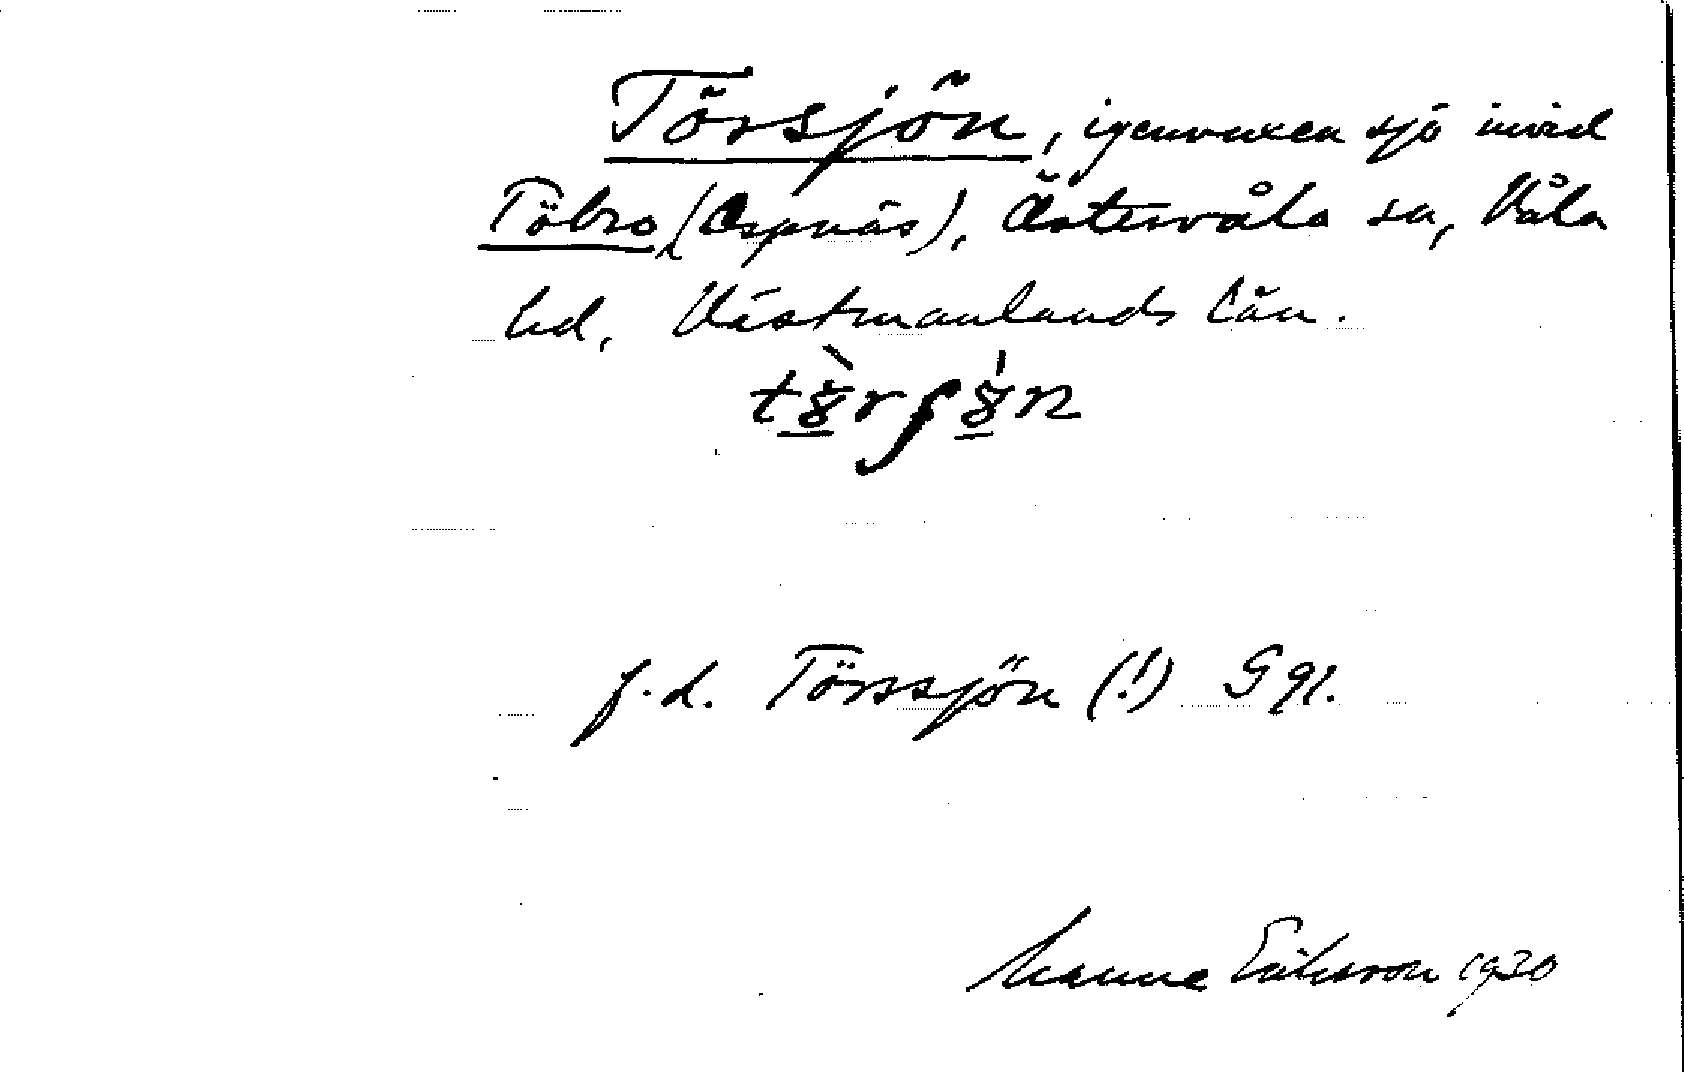 Törsjön, igenvuxen sjö invid
Töbro (Aspnäs), Östervåla sn, Våla
hd, Västmanlands län.
f.d. Törssjön (!) G 91.
Manne Eriksson 1930